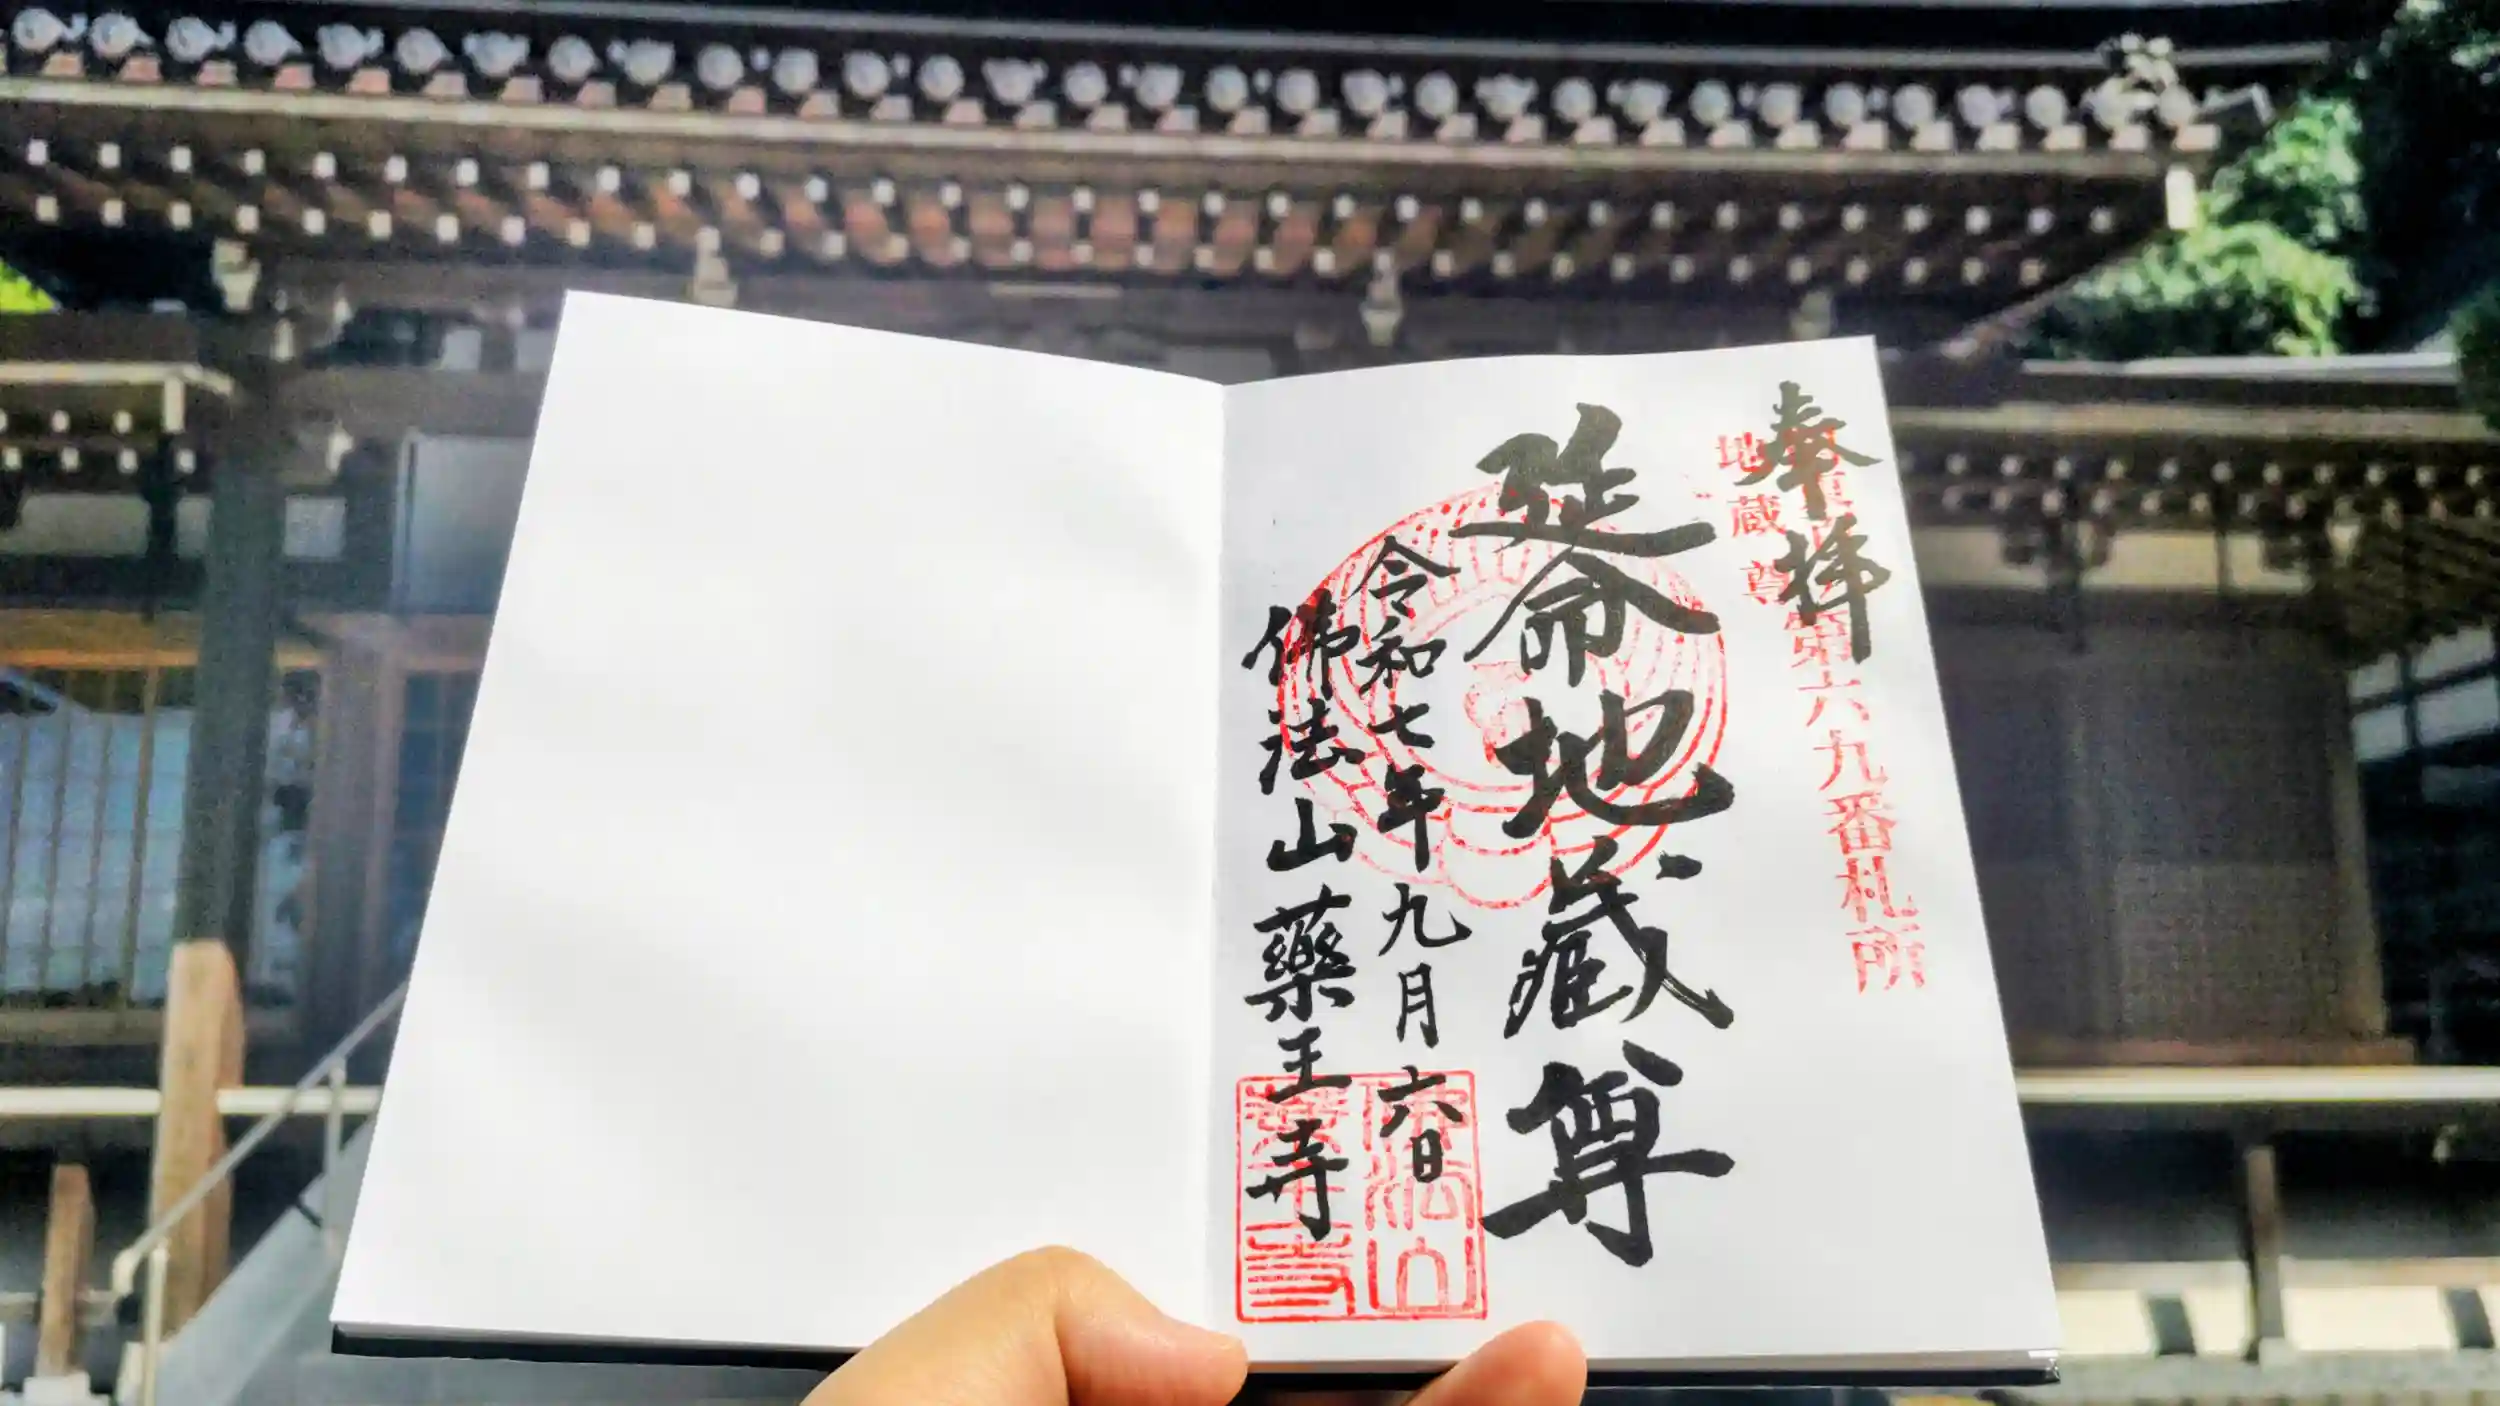 奉拝
第六九番札所
地蔵尊
延命地蔵尊
令和七年九月六日
佛法山薬王寺
佛法山
薬王寺